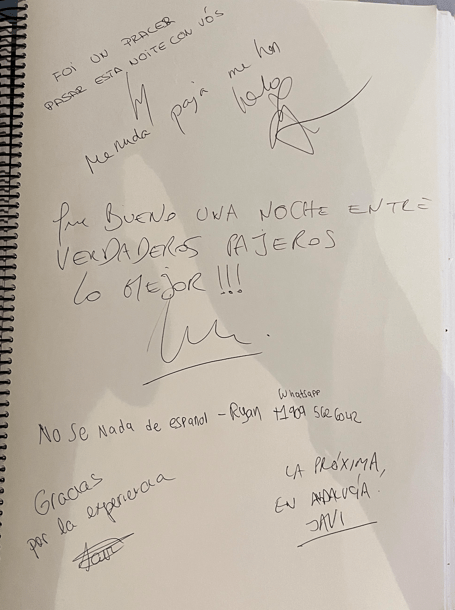 FOI UN PRACER
PASAR ESTA NOITE CON VÓS
Menuda paja me han
hecho
Que BUENO UNA NOCHE ENTRE
VERDADEROS PAJEROS
LO MEJOR!!!
No Se Nada de español - Ryan
Whatsapp
+1909 562 6042
Gracias
por la experiencia
LA PRÓXIMA,
EN ANDALUCÍA.
JAVI